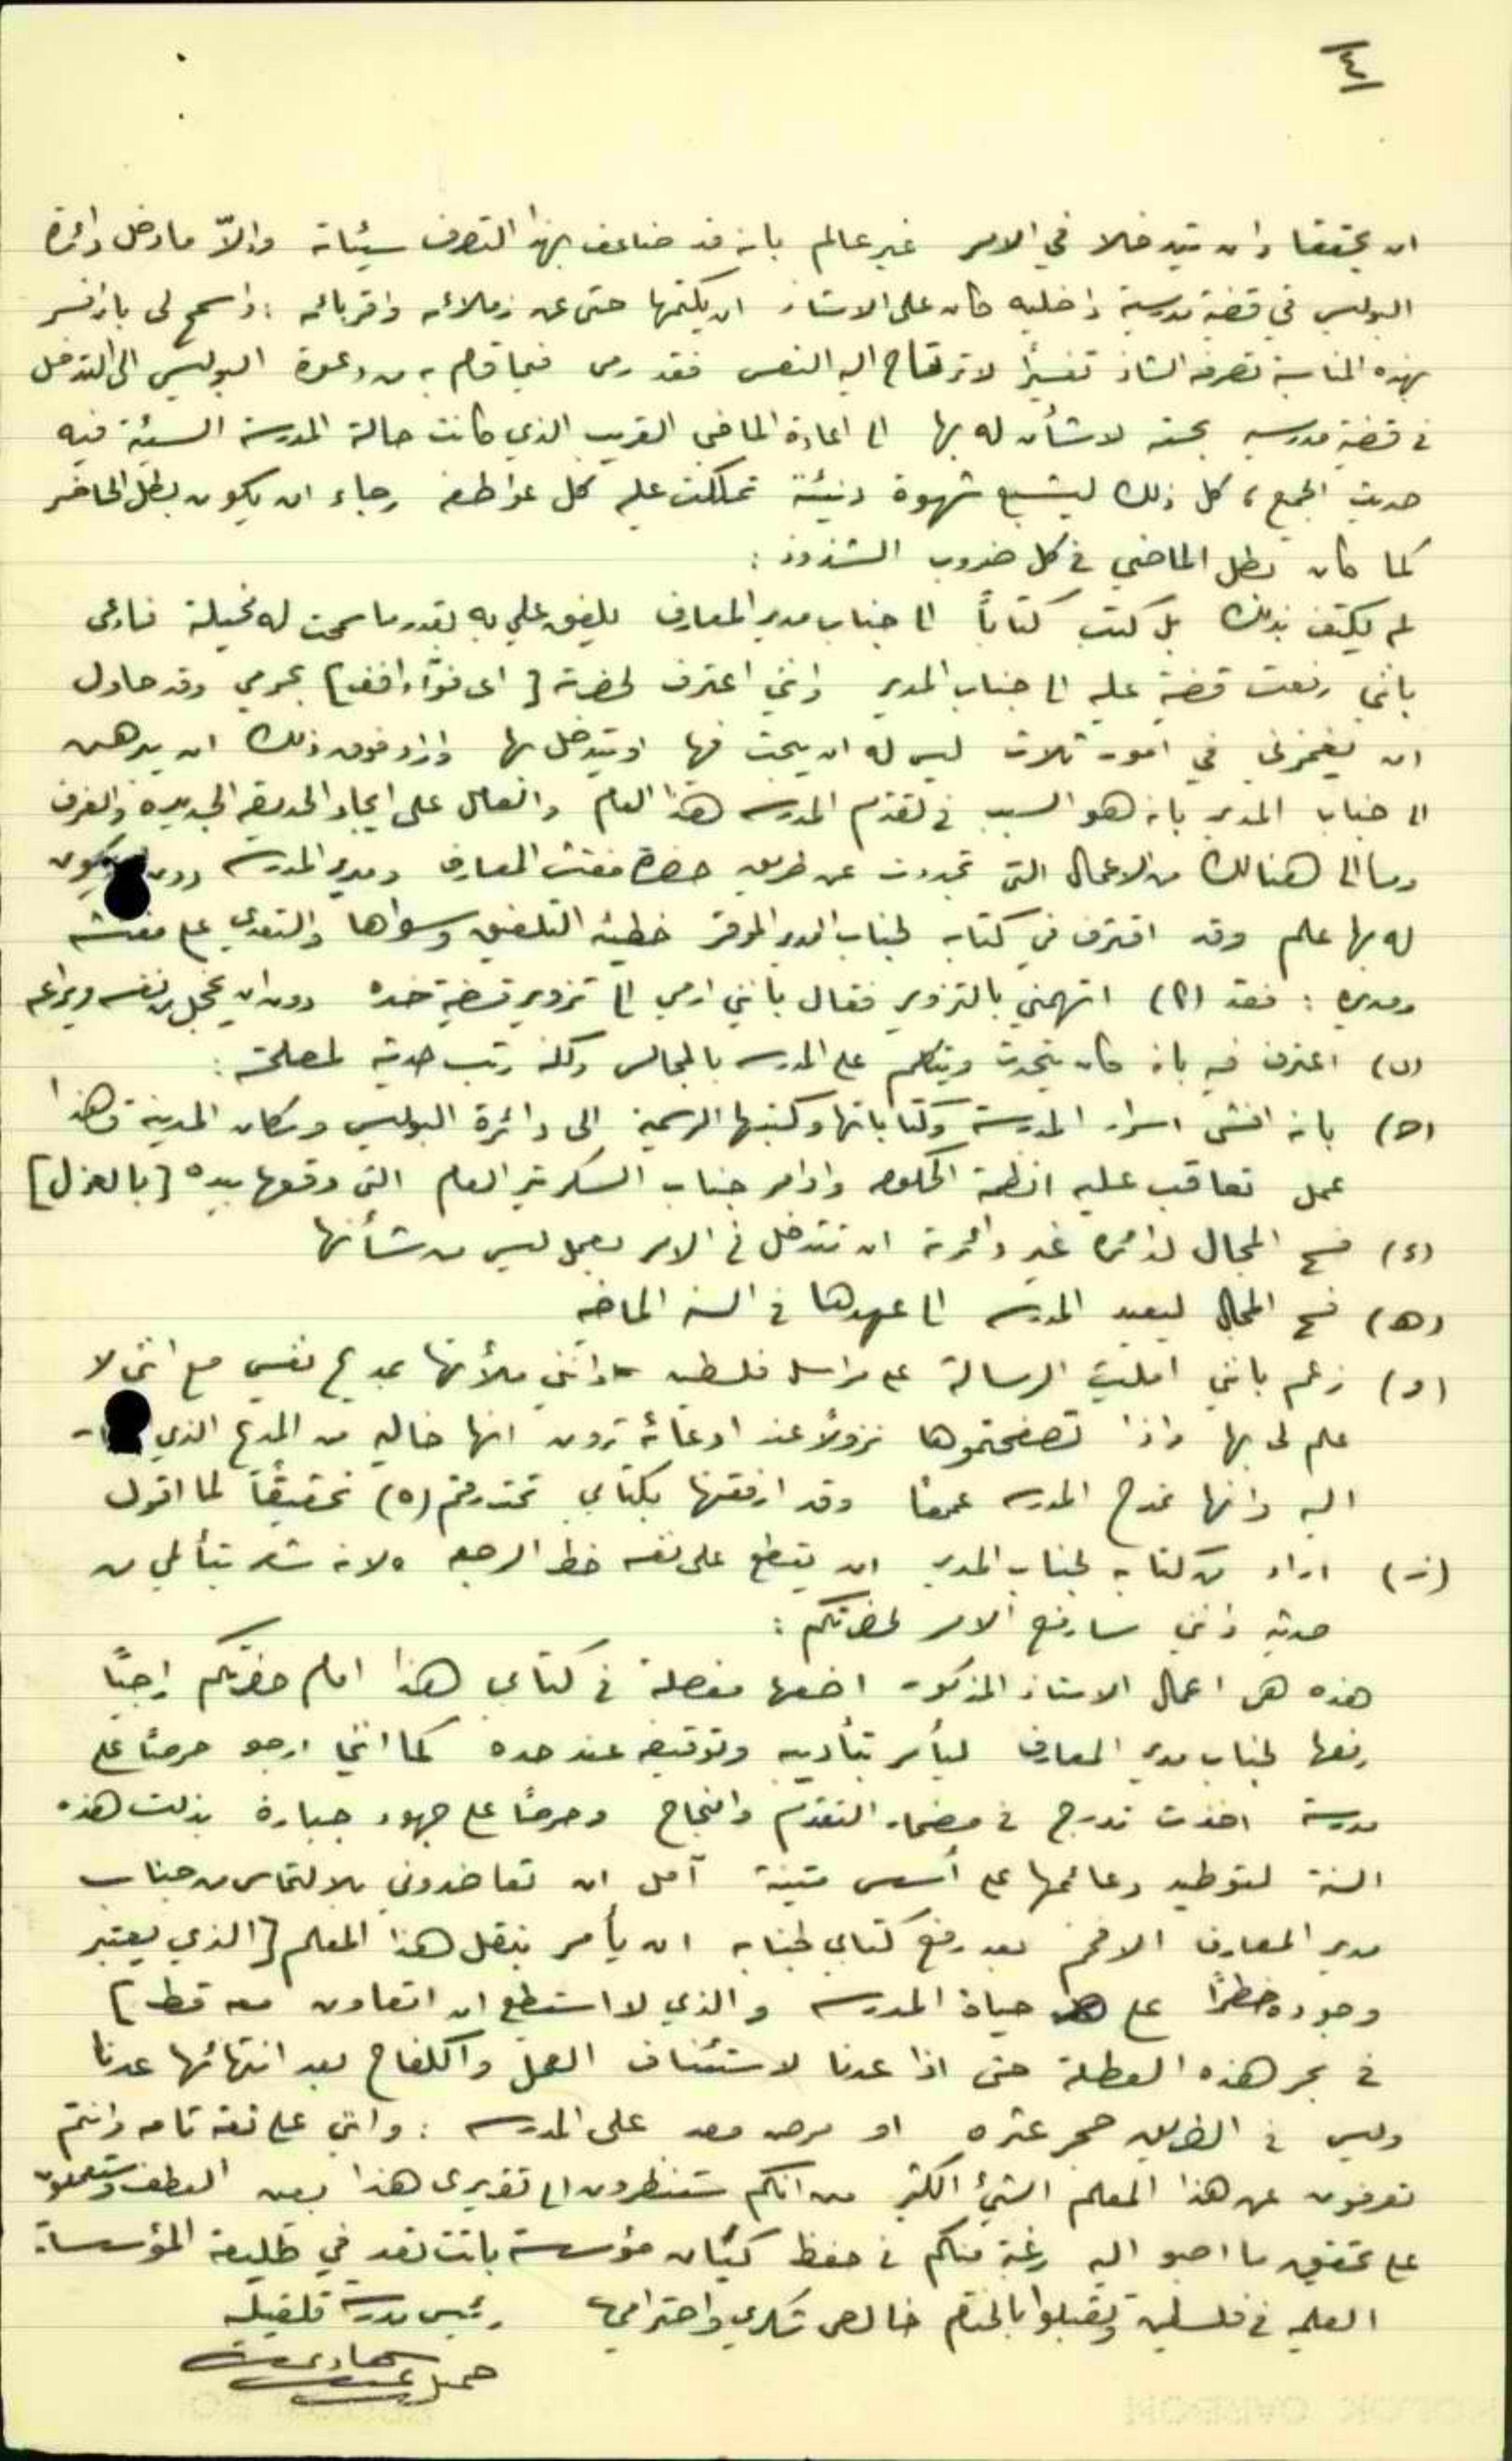 ان يحققا وان يتدخلا في الامر غير عالم بانه قد ضاعف بهذا التصرف سيئاته والاّ ما دخل دائرة
البوليس في قضية مدرسية داخلية كان على الاستاذ ان يكتمها حتى عن زملائه واقربائه : واسمح لي بان افسر
بهذه المناسبة تصرفه الشاذ تفسيراً لا ترتاح اليه النفس فقد رمى فيما قام به من دعوة البوليس الى التدخل
في قضية مدرسية بحته لا شأن له بها الى اعادة الماضي القريب الذي كانت حالة المدرسة السيئة فيه
حديث الجميع ، كل ذلك ليشبع شهوة دنيئة تملكت عليه كل عواطفه رجاء ان يكون بطل الحاضر
كما كان بطل الماضي في كل ضروب الشذوذ :
لم يكتف بذلك بل كتب كتاباً الى جناب مدير المعارف يلفق علي به بقدر ما سمحت له مخيلة فادعى
بانني رفعت قضية عليه الى جناب المدير وانني اعترف لحضرته [ اى فؤاد افندي ] بجرمي وقد حاول
ان يغمزني في امور ثلاث ليس له ان يبحث فيها او يتدخل بها وزاد فوق ذلك ان يبرهن
الى جناب المدير بانه هو السبب في تقدم المدرسه هذا العام والعامل على ايجاد الحديقة الجديدة والغرف
وما الى هنالك من الاعمال التي تجددت عن طريق حضرة مفتش المعارف ومدير المدرسة دون يكون
له بها علم وقد اقترف في كتابه لجناب المدير الموقر خطيئة التلفيق وسواها والتعدي على مفتشه
ومديره : فقد (ا) اتهمني بالتزوير فقال بانني ارمي الى تزوير قضية ضده دون ان يخجل من نفسه ويراعه
(ب) اعترف فيه بانه كان يتحدث ويتكلم على المدرسه بالمجالس ولكنه رتب حديثه لمصلحته :
(ج) بانه افشى اسرار المدرسة وكتاباتها وكتبها الرسمية الى دائرة البوليس وسكان المدينة وهذا
عمل تعاقب عليه انظمة الحكومه واوامر جناب السكرتير العام التي وقعها بيده [ بالعزل ]
(د) فسح المجال لدائرة غير دائرته ان تتدخل في الامر بعمل ليس من شأنها
(ه) فسح المجال ليعيد المدرسه الى عهدها في السنه الماضيه
(و) زعم بانني امليت الرسالة على مراسل فلسطين وانني ملأتها بمديح نفسي مع انني لا
علم لي بها واذا تصفحتموها نزولاً عند ادعائه ترون انها خاليه من المديح الذي
اليه وانها تمدح المدرسه عموماً وقد ارفقتها بكتابي تحت رقم (٥) تحقيقاً لما اقول
(ز) اراد من كتابه لجناب المدير ان يقطع على نفسه خط الرجعه لانه شعر بتألمي من
حديثه وانني سارفع الامر لحضرتكم :
هذه هي اعمال الاستاذ المذكور اضعها مفصلة في كتابي هذا امام حضرتكم راجياً
رفعها لجناب مدير المعارف ليأمر بتأديبه وتوقيفه عند حده كما انني ارجو حرصاً على
مدرسة اخذت تدرج في مضمار التقدم والنجاح وحرصاً على جهود جبارة بذلت هذه
السنة لتوطيد دعائمها على أسس متينة آمل ان تعاضدوني بالالتماس من جناب
مدير المعارف الافخم بعد رفع كتابي لجنابه ان يأمر بنقل هذا المعلم [ الذي يعتبر
وجوده خطراً على حياة المدرسه والذي لا استطيع ان اتعاون معه قط ]
في بحر هذه العطلة حتى اذا عدنا لاستئناف العمل والكفاح بعد انتهائها عدنا
وليس في الطريق حجر عثره او مرض معد على المدرسه : وانني على ثقه تامه وانتم
تعرفون عن هذا المعلم الشيء الكثير من انكم ستنظرون الى تقريرى هذا بعين العطف وستعملون
على تحقيق ما اصبو اليه رغبة منكم في حفظ كيان مؤسسة باتت تعد في طليعة المؤسسات
العلميه في فلسطين وتقبلوا بالختام خالص شكري واحترامي رئيس مدرسة قلقيليه